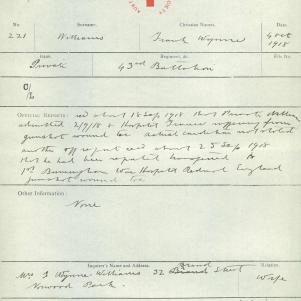 No. Surname. Christian Names. Date
221 Williams Frank Wynne 4 Oct
1918
Rank. Regiment, &c. File No.
Private 43rd Battalion
OFFICIAL REPORTS: recd about 18 Sep 1918 that Private Williams
admitted 2/9/18 to Hospital France suffering from
gunshot wound etc actual condition not stated
another off report recd about 25 Sep 1918
that he had been reported transferred to
1st Birmingham War Hospital Rednal England
gunshot wound etc
Other Information:
None
Inquirer's Name and Address. Relation
Mrs F Wynne-Williams 32 Street Wife
Norwood Park.